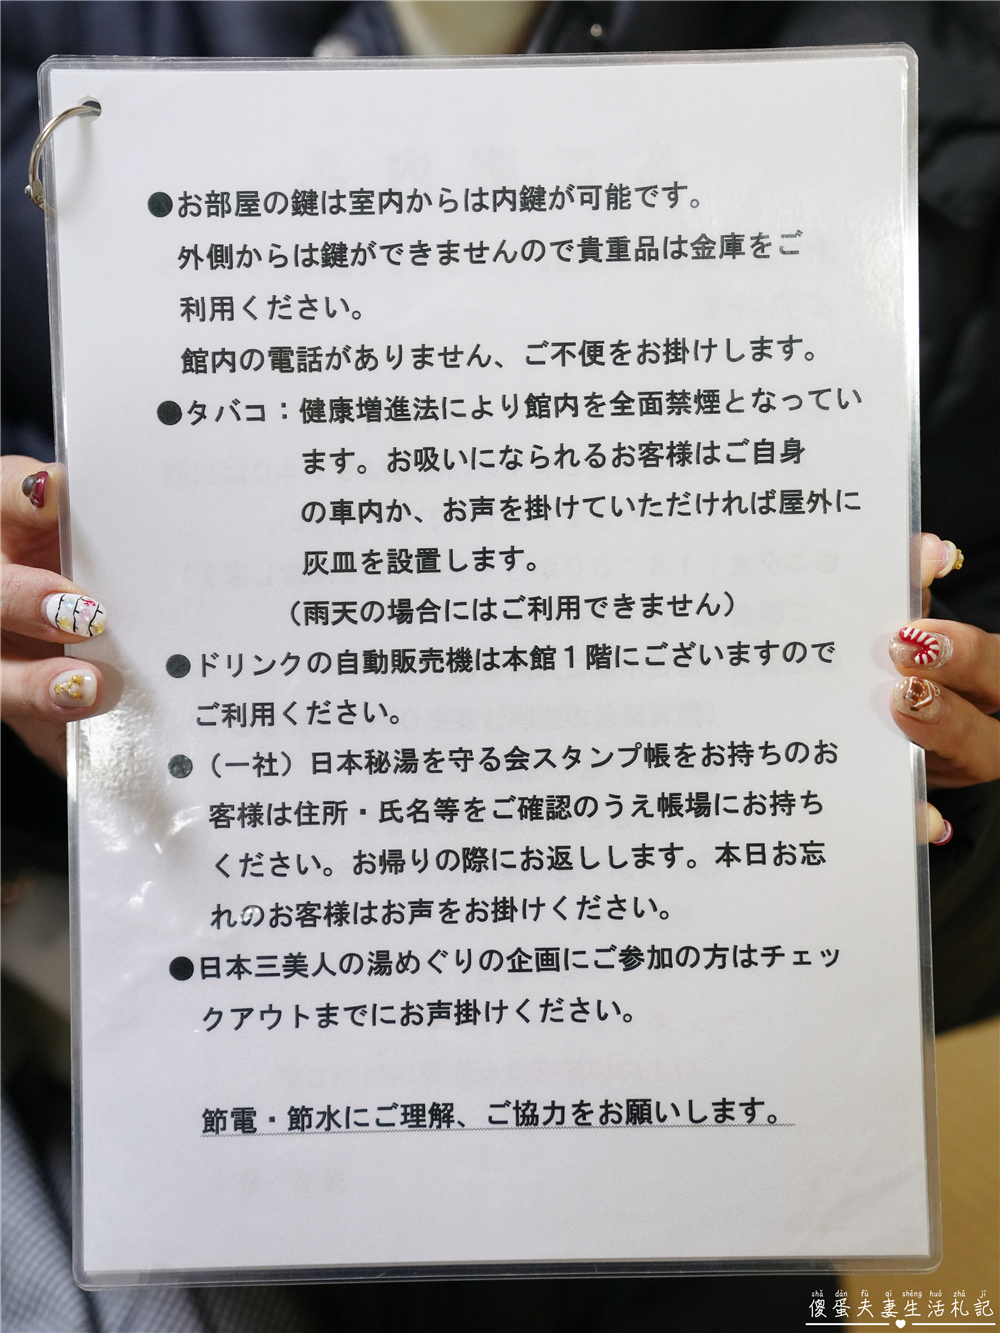 ●お部屋の鍵は室内からは内鍵が可能です。
外側からは鍵ができませんので貴重品は金庫をご
利用ください。
館内の電話がありません、ご不便をお掛けします。
●タバコ：健康増進法により館内を全面禁煙となってい
ます。お吸いになられるお客様はご自身
の車内か、お声を掛けていただければ屋外に
灰皿を設置します。
（雨天の場合にはご利用できません）
●ドリンクの自動販売機は本館１階にございますので
ご利用ください。
●（一社）日本秘湯を守る会スタンプ帳をお持ちのお
客様は住所・氏名等をご確認のうえ帳場にお持ち
ください。お帰りの際にお返しします。本日お忘
れのお客様はお声をお掛けください。
●日本三美人の湯めぐりの企画にご参加の方はチェッ
クアウトまでにお声掛けください。
節電・節水にご理解、ご協力をお願いします。
shǎ dàn fū qī shēng huó zhá jì
傻蛋夫妻生活札記